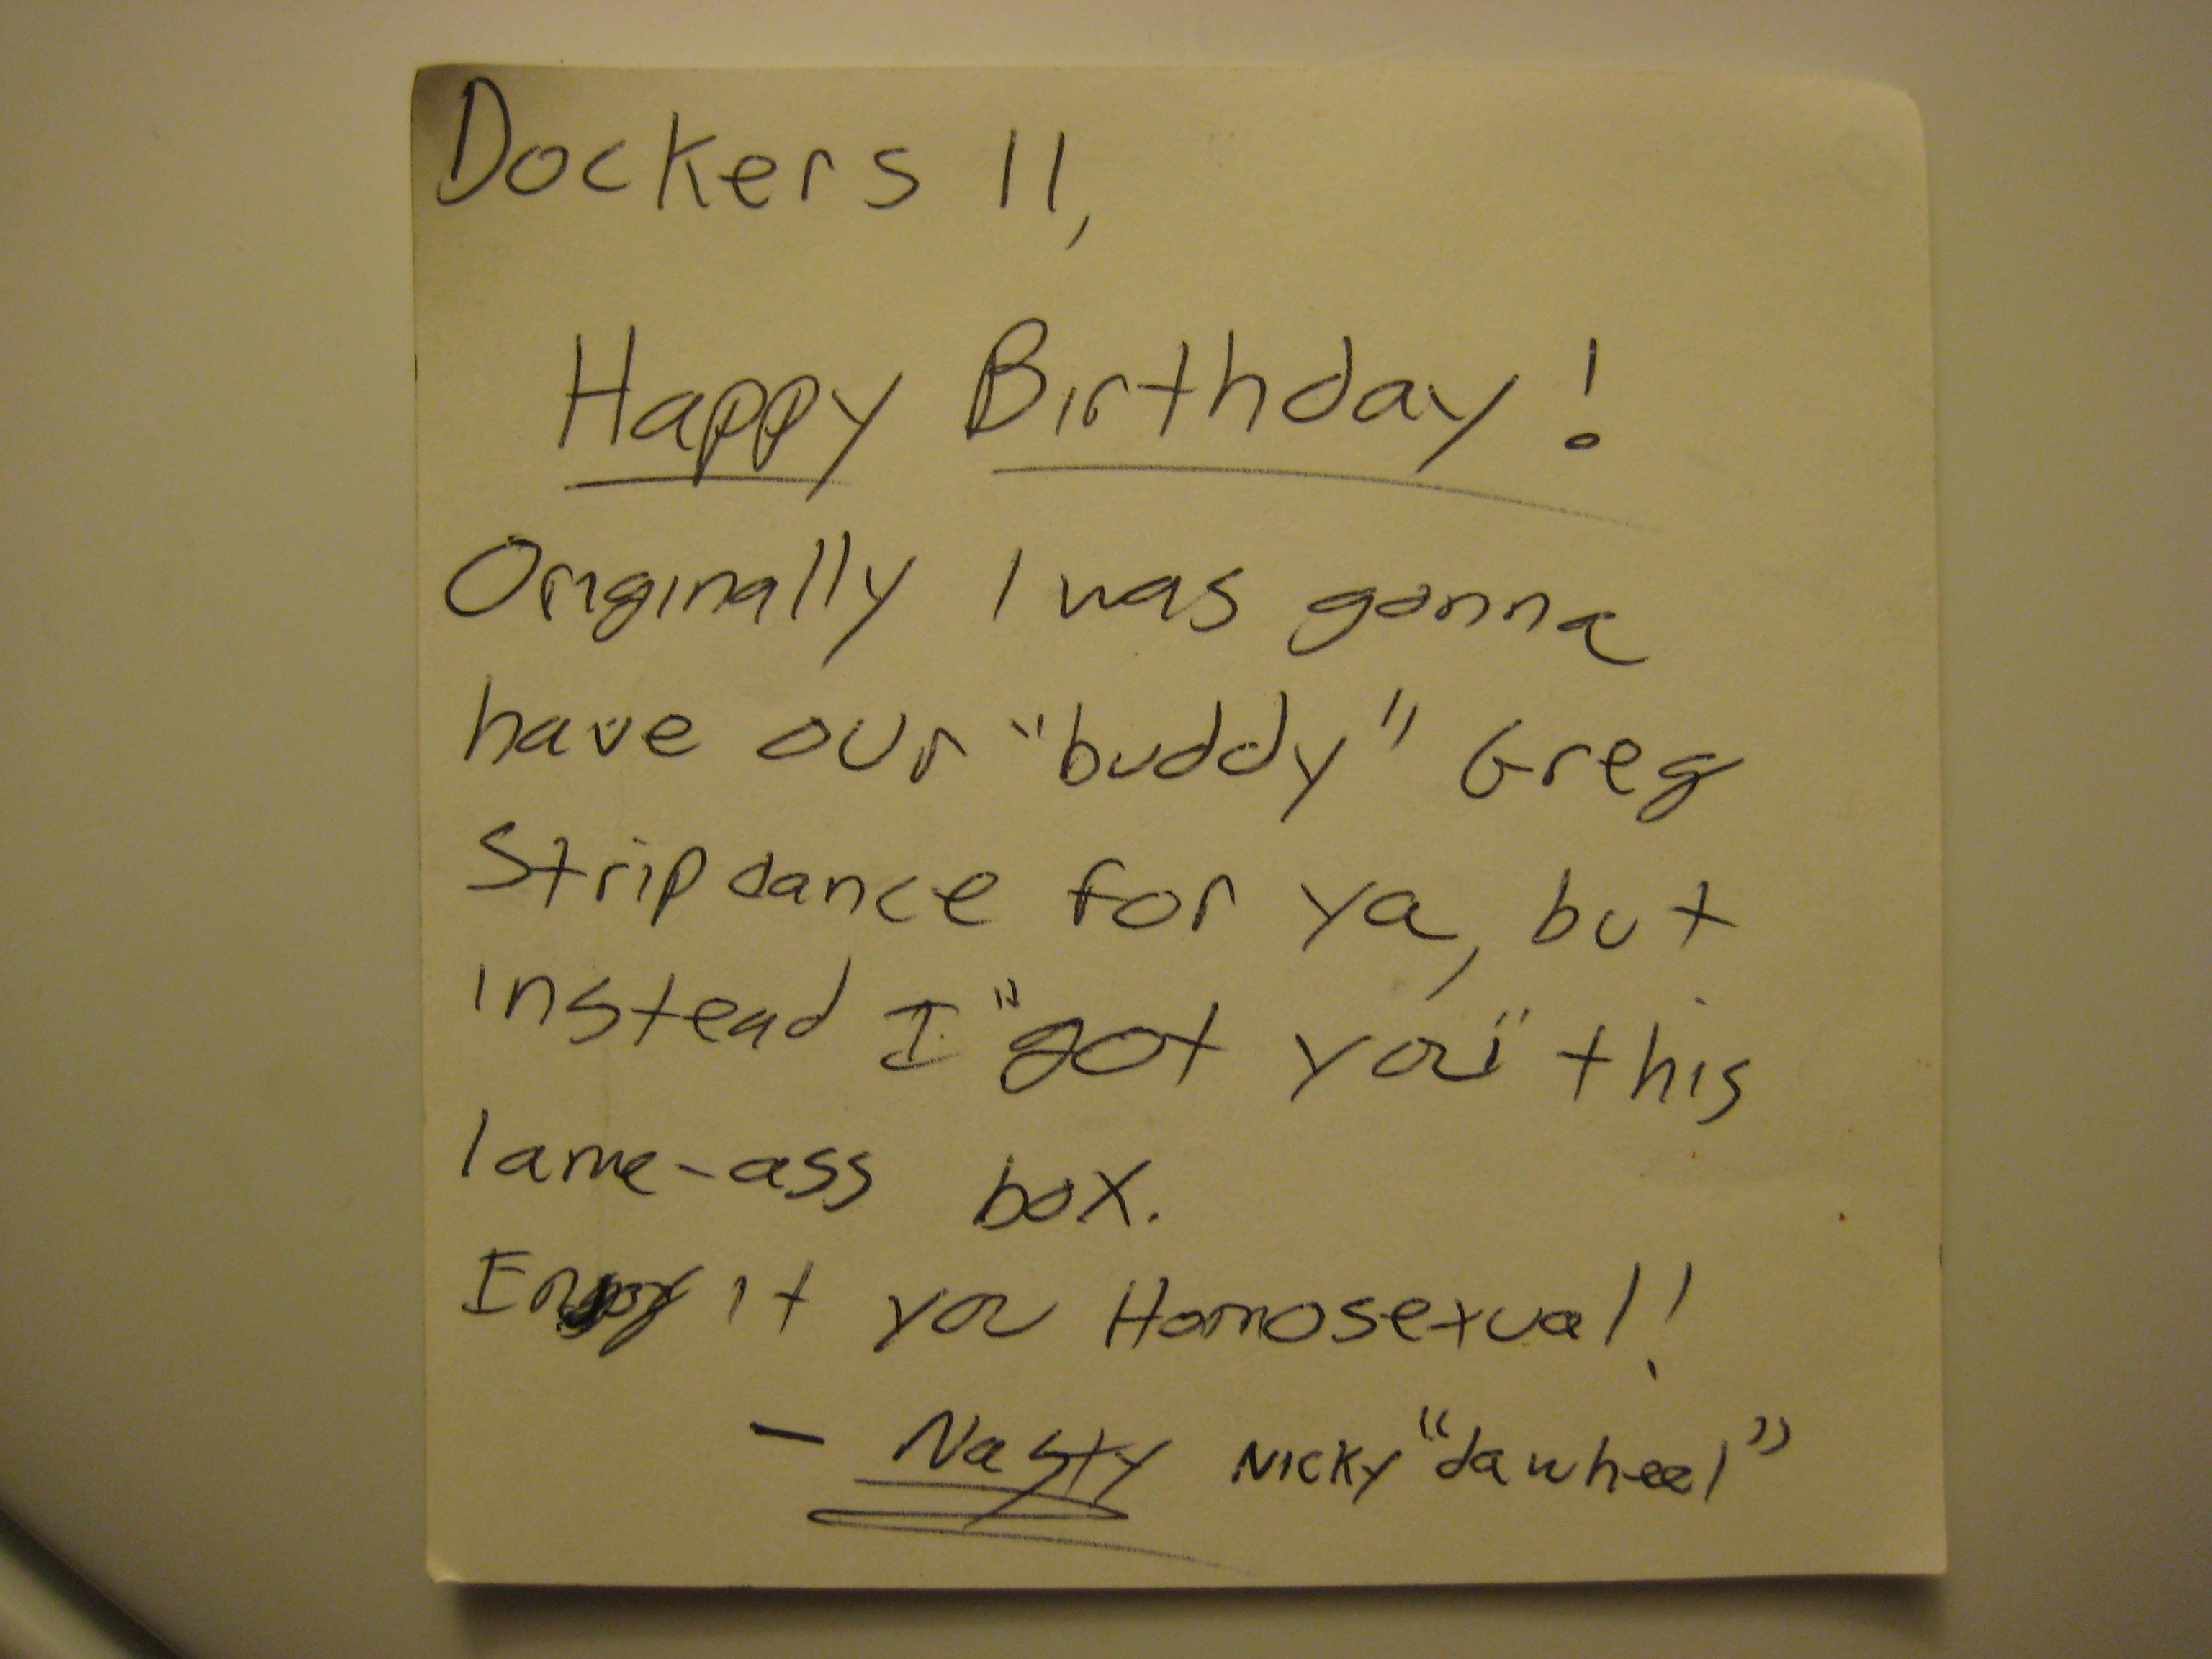 Dockers 11,
Happy Birthday!
Originally I was gonna
have our "buddy" Greg
Stripdance for ya, but
instead I "got you" this
lame-ass box.
Enjoy it you Homosexual!!
- Nasty Nicky "da wheel"